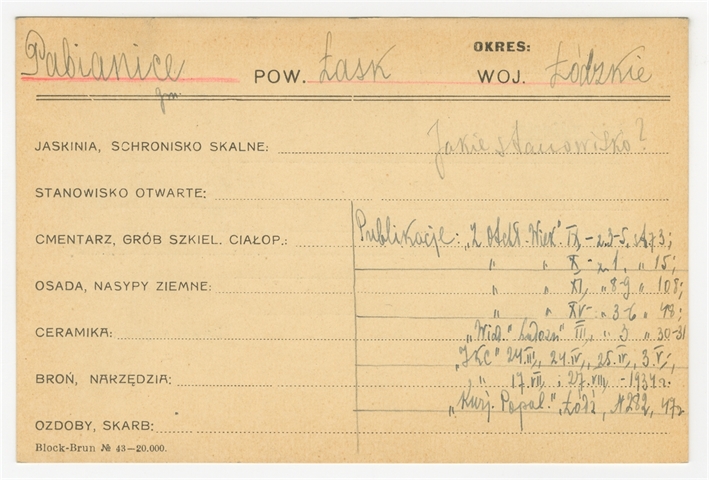 OKRES:
Pabianice POW. Łask WOJ. Łódzkie
gm.
JASKINIA, SCHRONISKO SKALNE: Jakie stanowisko?
STANOWISKO OTWARTE:
CMENTARZ, GRÓB SZKIEL. CIAŁOP.: Publikacje: "Z otchł. Wiek." IX, - z. 3-5, s. 73;
" " X - z. 1, " 15;
OSADA, NASYPY ZIEMNE: " " XI, " 8-9 " 108;
" " XV - " 3-6 " 48;
CERAMIKA: "Wiad. Ludozn" III, " 3 " 30-31
"IKC" 24.III, 24.IV, 25.IV, 3.V,
BROŃ, NARZĘDZIA: " 17.VII, i 27.VII, - 1934 r.
"Kurj. Popol." Łódź, N 282, 47 r.
OZDOBY, SKARB:
Block-Brun № 43-20.000.